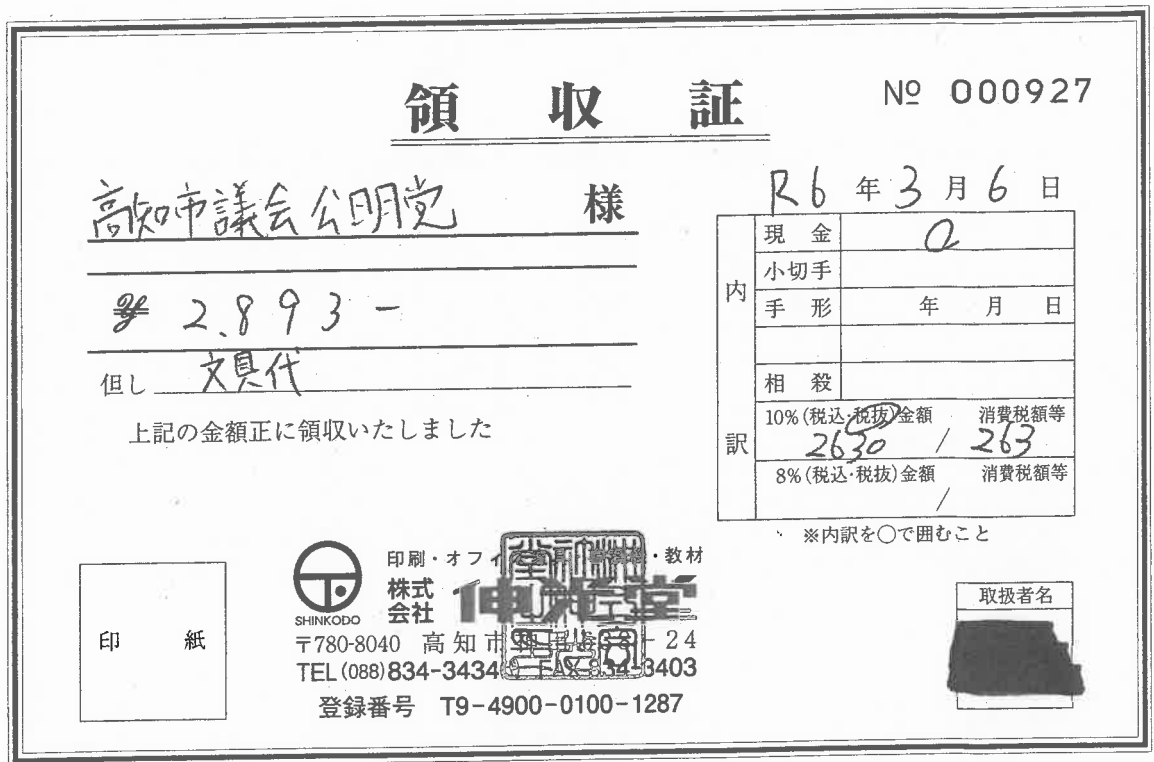 領収証
№ 000927
高知市議会公明党 様
R6年3月6日
¥ 2,893-
但し 文具代
上記の金額正に領収いたしました
内訳
現金 〇
小切手
手形 年 月 日
相殺
10%(税込・税抜)金額 消費税額等
2630 / 263
8%(税込・税抜)金額 消費税額等
/
※内訳を○で囲むこと
印紙
SHINKODO
印刷・オフィ ・教材
株式会社 伸光堂
〒780-8040 高知市 -24
TEL(088)834-3434 FAX 834-3403
登録番号 T9-4900-0100-1287
取扱者名